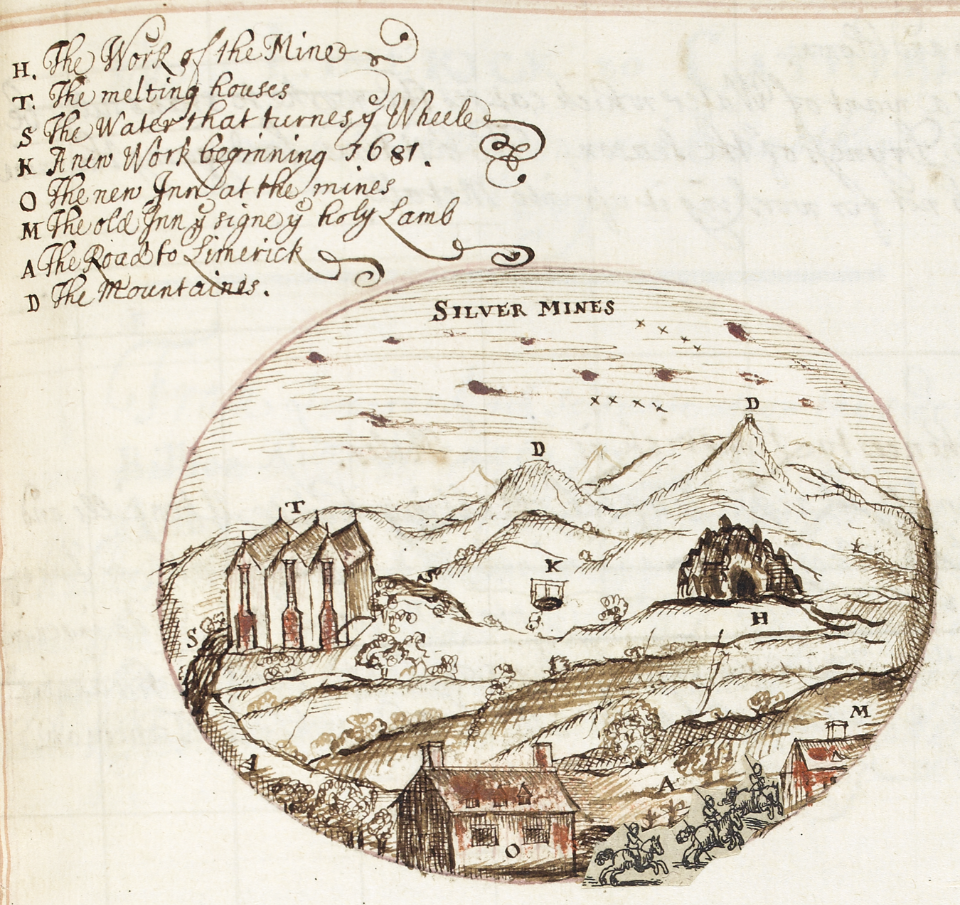 H. The Work of the Mine
T. The melting houses
S The Water that turnes yͤ Wheele
K A new Work beginning 1681.
O The new Inn at the mines
M The old Inn yͤ signe yͤ holy Lamb
A The Road to Limerick
D The Mountaines.
SILVER MINES
D
D
T
K
H
S
M
A
A
O